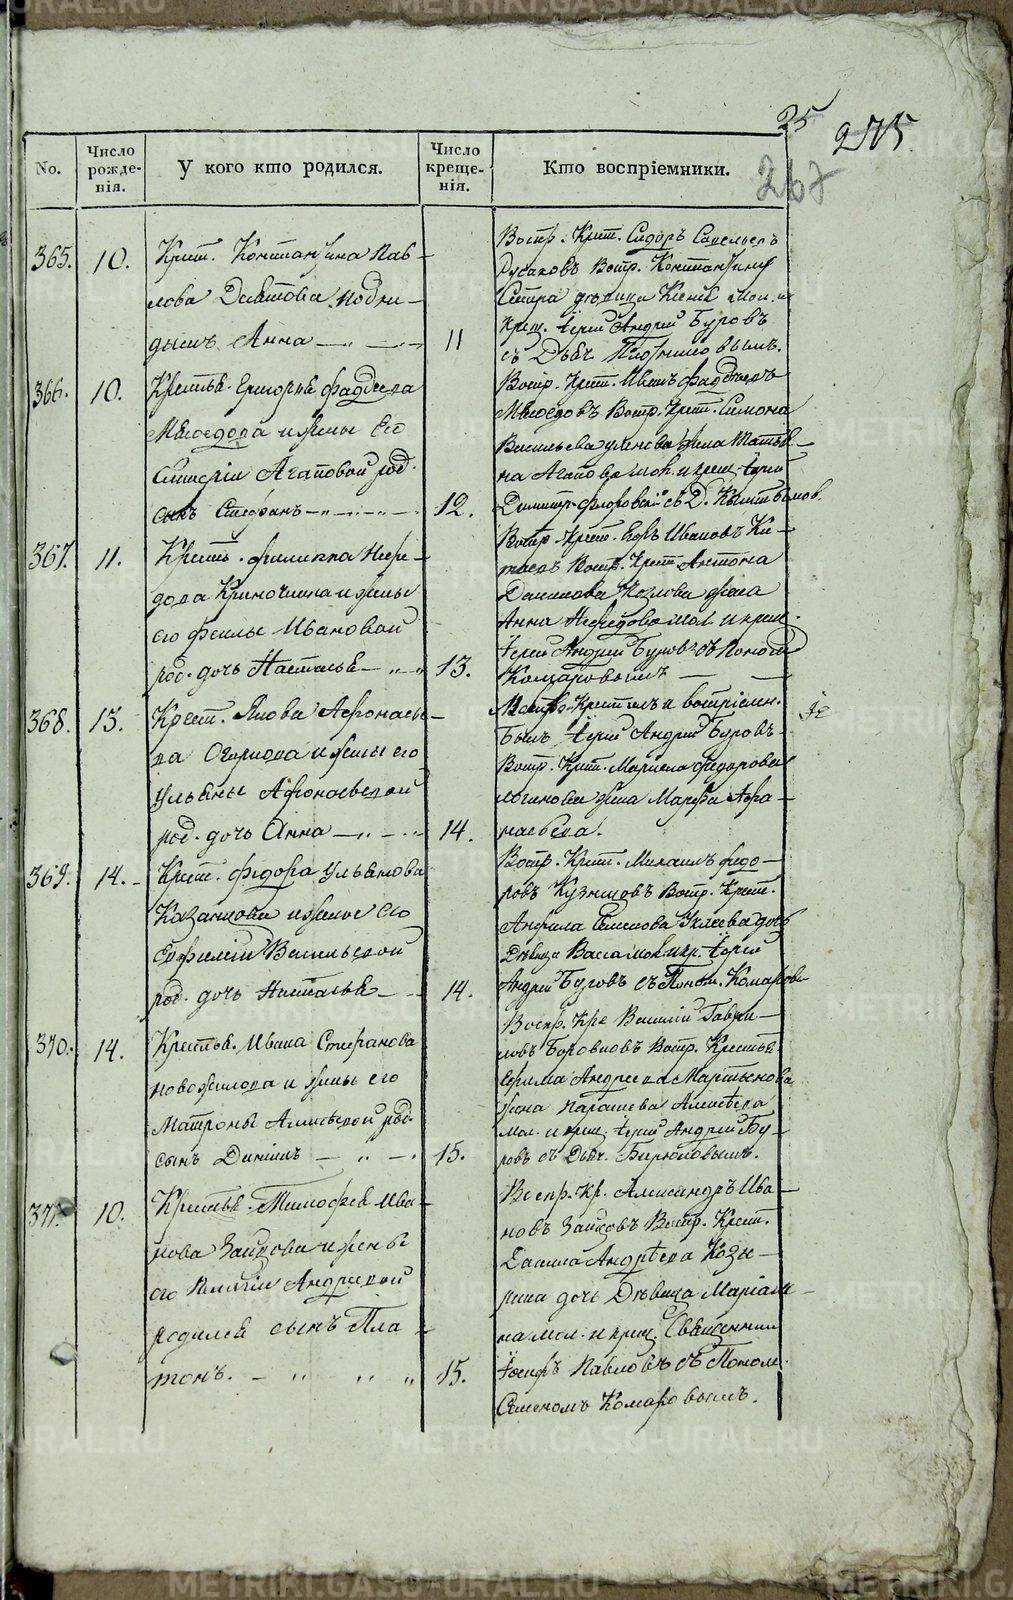 25
275
267
No.
Число рожде-нія.
У кого кто родился.
Число креще-нія.
Кто воспріемники.
365. 10. Крест. Константина Пав-
лова Девятова подки-
дышъ Анна 11
Воспр. Крест. Сидоръ Савельевъ
Русаковъ Воспр. Константину
Сестра девица Ксенія мол. и
крещ. Іерей Андрей Буровъ
съ Дьяч. Плотниковымъ.
366. 10. Крестья. Григорья Фаддеева
Мясоедова и жены его
Агаповой род.
сынъ Стефанъ 12.
Воспр. Крест. Иванъ Фаддеевъ
Мясоедовъ Воспр. Крест. Симона
Васильева жена Татья-
на Агапова мол. и крещ. Іерей
Димитр. Флоровскій съ Д.
367. 11. Кресть. Филиппа Нефе-
дова и жены
его Феклы Ивановой
род. дочь Наталья 13.
Воспр. Крест. Егоръ Ивановъ Ки-
таевъ Воспр. Крест. Антона
Данилова Козлова жена
Анна Нефедова мол. и крещ.
Іерей Андрей Буров. съ Поном.
Комаровымъ
368. 13. Крест. Якова Афонасье-
ва и жены его
Ульяны Афонасьевой
род. дочь Анна 14.
Крестилъ и воспріемн.
былъ Іерей Андрей Буровъ
Воспр. Крест. Федорова
Логинова жена Марфа Афо-
насьева.
369. 14. Крест. Федора Ульянова
Казанцова и жены его
Евфиміи Васильевой
род. дочь Наталья 14.
Воспр. Крест. Михаилъ Федо-
ровъ Кузнецовъ Воспр. Крест.
Семенова дочь
Девица Васса мол. и кр. Іерей
Андрей Буровъ съ Поном. Комаровы
370. 14. Крестья. Ивана Стефанова
Новожилова и жены его
Матроны Алексеевой род.
сынъ Даніилъ 15.
Воспр. Кре Василій Гаври-
ловъ Боровковъ Воспр. Крестья.
Ефима Андреева Мартьянова
жена Парасева Алексеева
мол. и крещ. Іерей Андрей Бу-
ровъ съ Дьяч. Бирюковымъ.
371. 10. Крестья. Тимофея Ива-
нова Зайцова и жены
его Пелагіи Андреевой
родился сынъ Пла-
тонъ. 15.
Воспр. Кр. Александръ Ива-
новъ Зайцовъ Воспр. Крест.
Андреева Козы-
рина дочь Девица Маріам-
на мол. и крещ. Священник
Іосифъ Павловъ съ Поном.
Семеномъ Комаровымъ.
METRIKI.GASO-URAL.RU